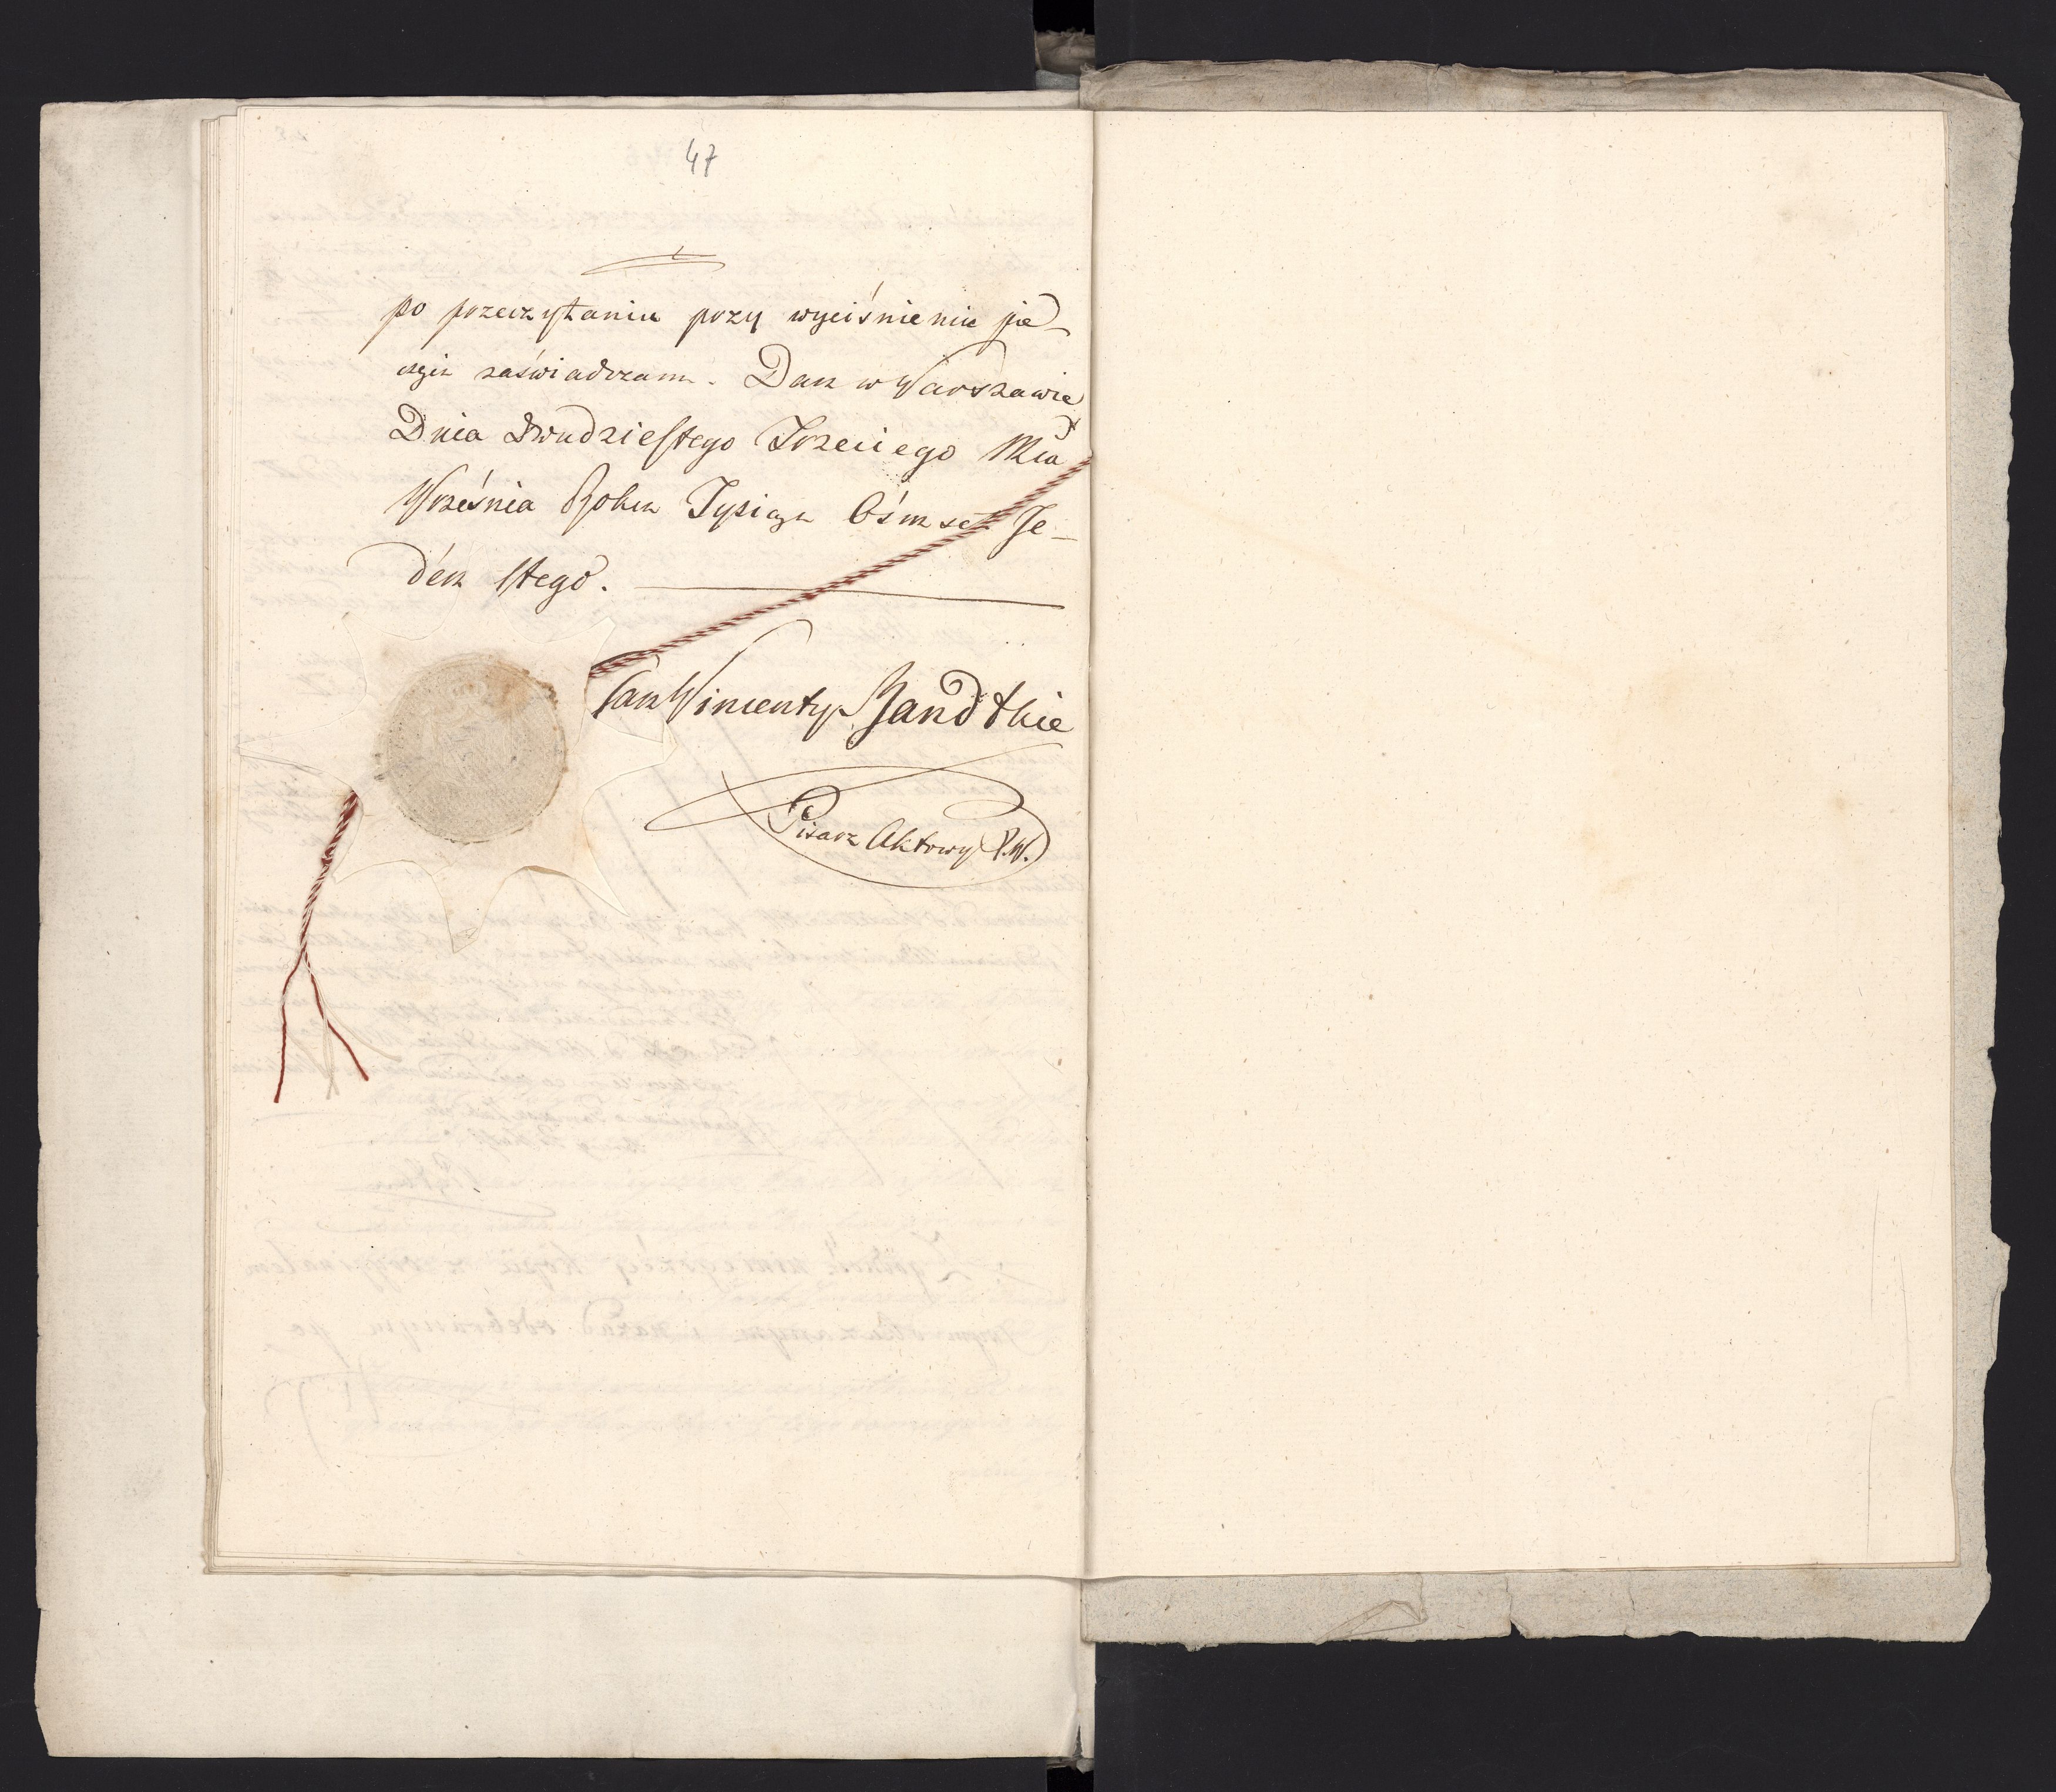 47
po przeczytaniu przy wyciśnieniu pie-
częci zaświadczam. Dan w Warszawie
Dnia Dwudziestego Trzeciego Mca
Września Roku Tysiąc Ośmset Je-
den stego.
Jan Wincenty Bandtkie
Pisarz Aktowy P.W.